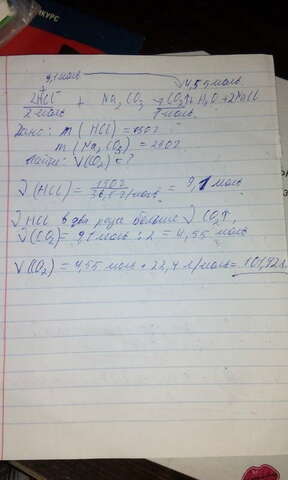 9,1 моль 4,55 моль
2HCl + Na2CO3 → CO2↑ + H2O + 2NaCl
2 моль 1 моль
Дано: m(HCl) =
m(Na2CO3) =
Найти: V(CO2) - ?
ν(HCl) = = 9,1 моль
ν HCl в два раза больше ν CO2↑,
ν(CO2) = 9,1 моль : 2 = 4,55 моль
V(CO2) = 4,55 моль * 22,4 л/моль = 101,92 л.